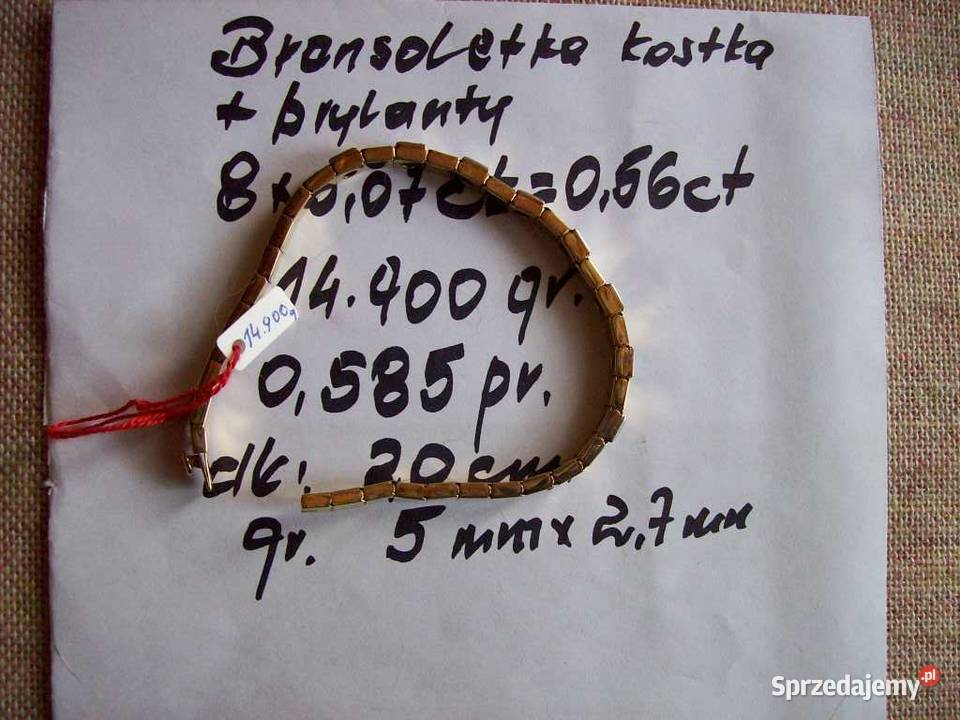 Bransoletka kostka
+ brylanty
8x0,07ct=0,56ct
14.400 gr.
14.900g
0,585 pr.
dł: 20cm
gr. 5 mm x 2,7mm
Sprzedajemy.pl